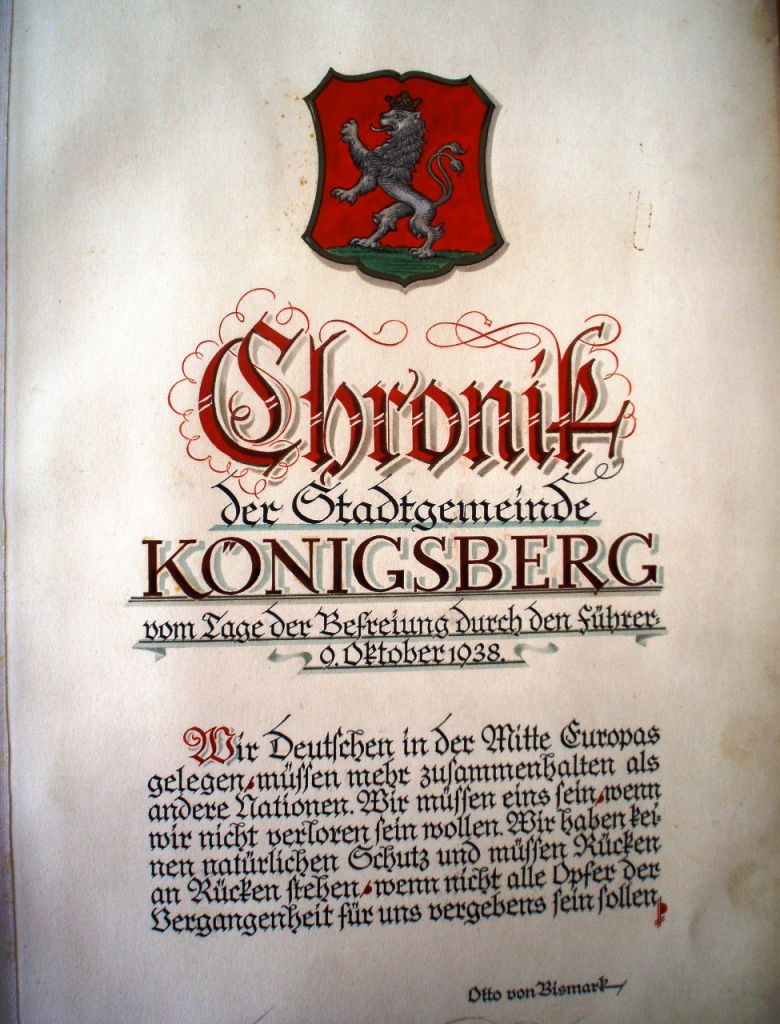 Chronik
der Stadtgemeinde
KÖNIGSBERG
vom Tage der Befreiung durch den Führer-
9. Oktober 1938.
Wir Deutschen in der Mitte Europas
gelegen, müssen mehr zusammenhalten als
andere Nationen. Wir müssen eins sein, wenn
wir nicht verloren sein wollen. Wir haben kei-
nen natürlichen Schutz und müssen Rücken
an Rücken stehen, wenn nicht alle Opfer der
Vergangenheit für uns vergebens sein sollen.
Otto von Bismark